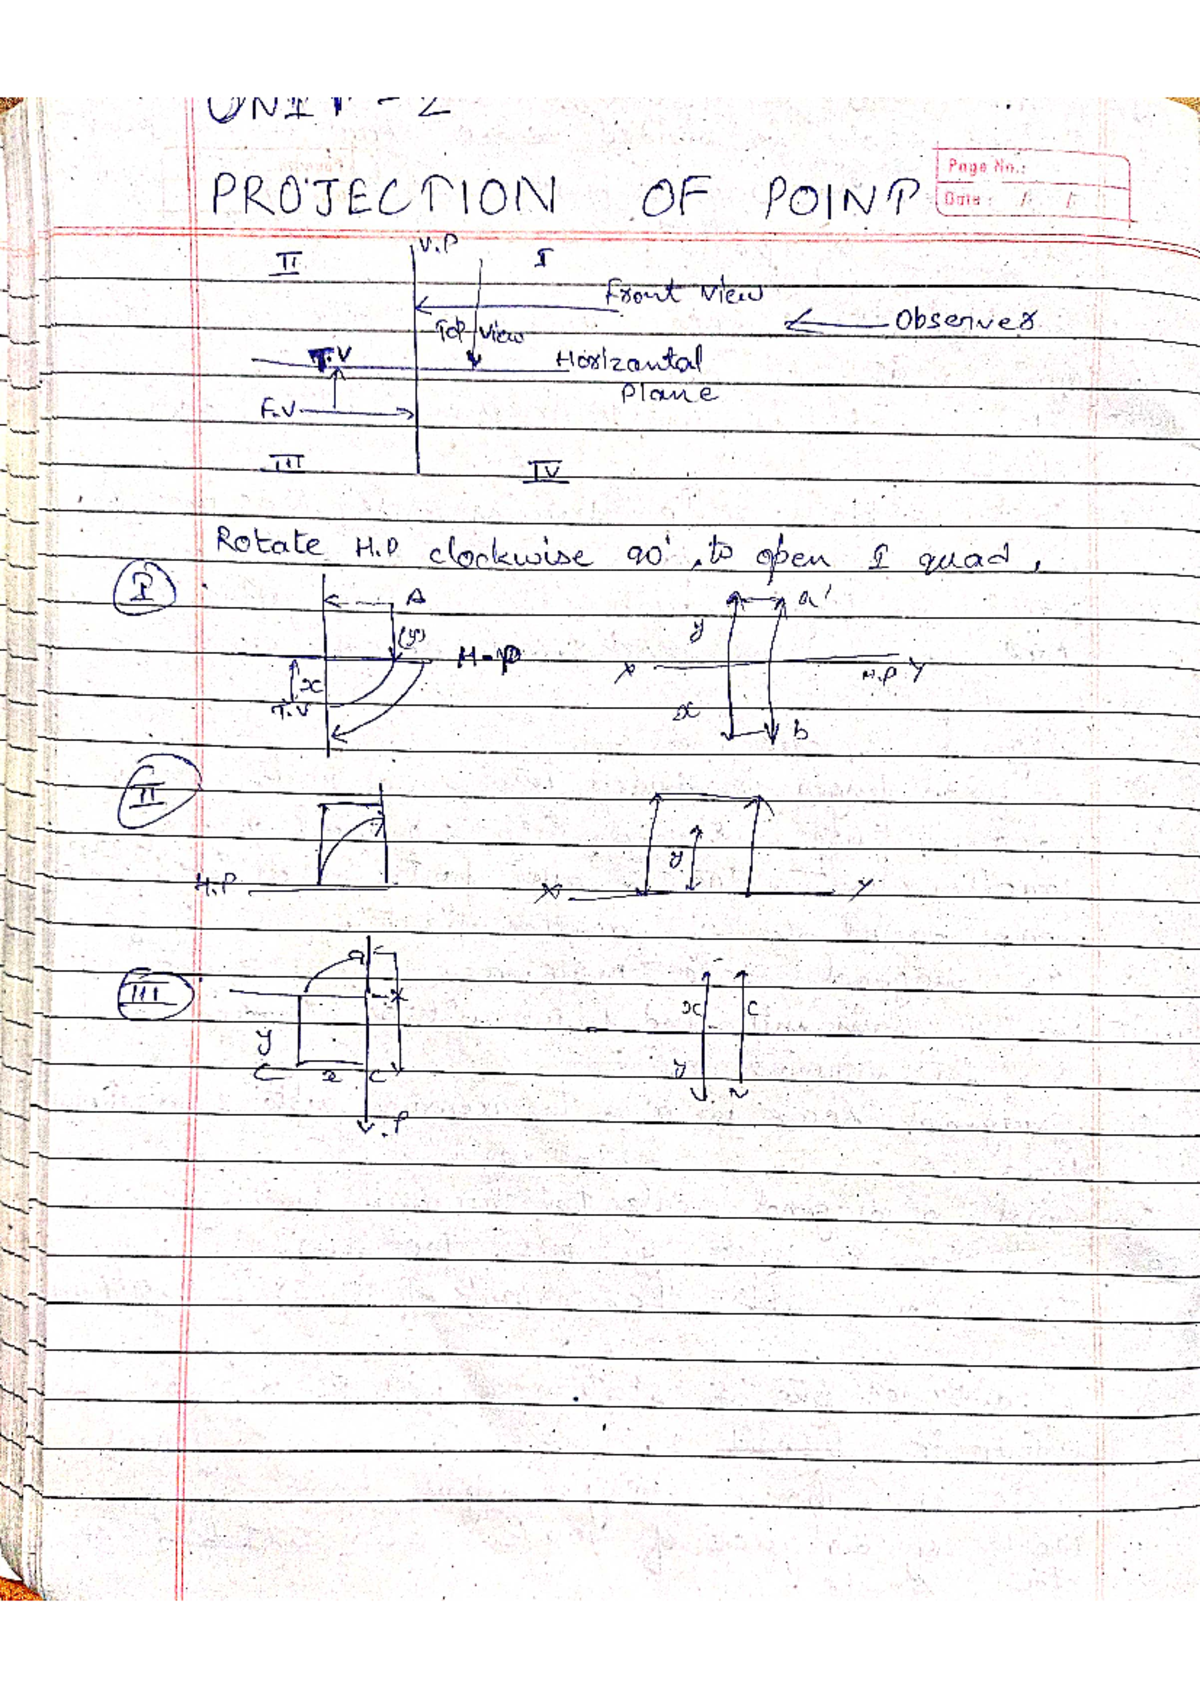 UNIT - 2
Page No.:
PROJECTION OF POINT
Date : / /
V.P
II I
Front View
Observer
Top View
T.V Horizontal
Plane
F.V
III IV
Rotate H.P clockwise 90° to open I quad,
I
A a'
(y) y
H-P X H.P Y
x
T.V x b
II
y
H.P X Y
a
III
x c
y y
x c
.P